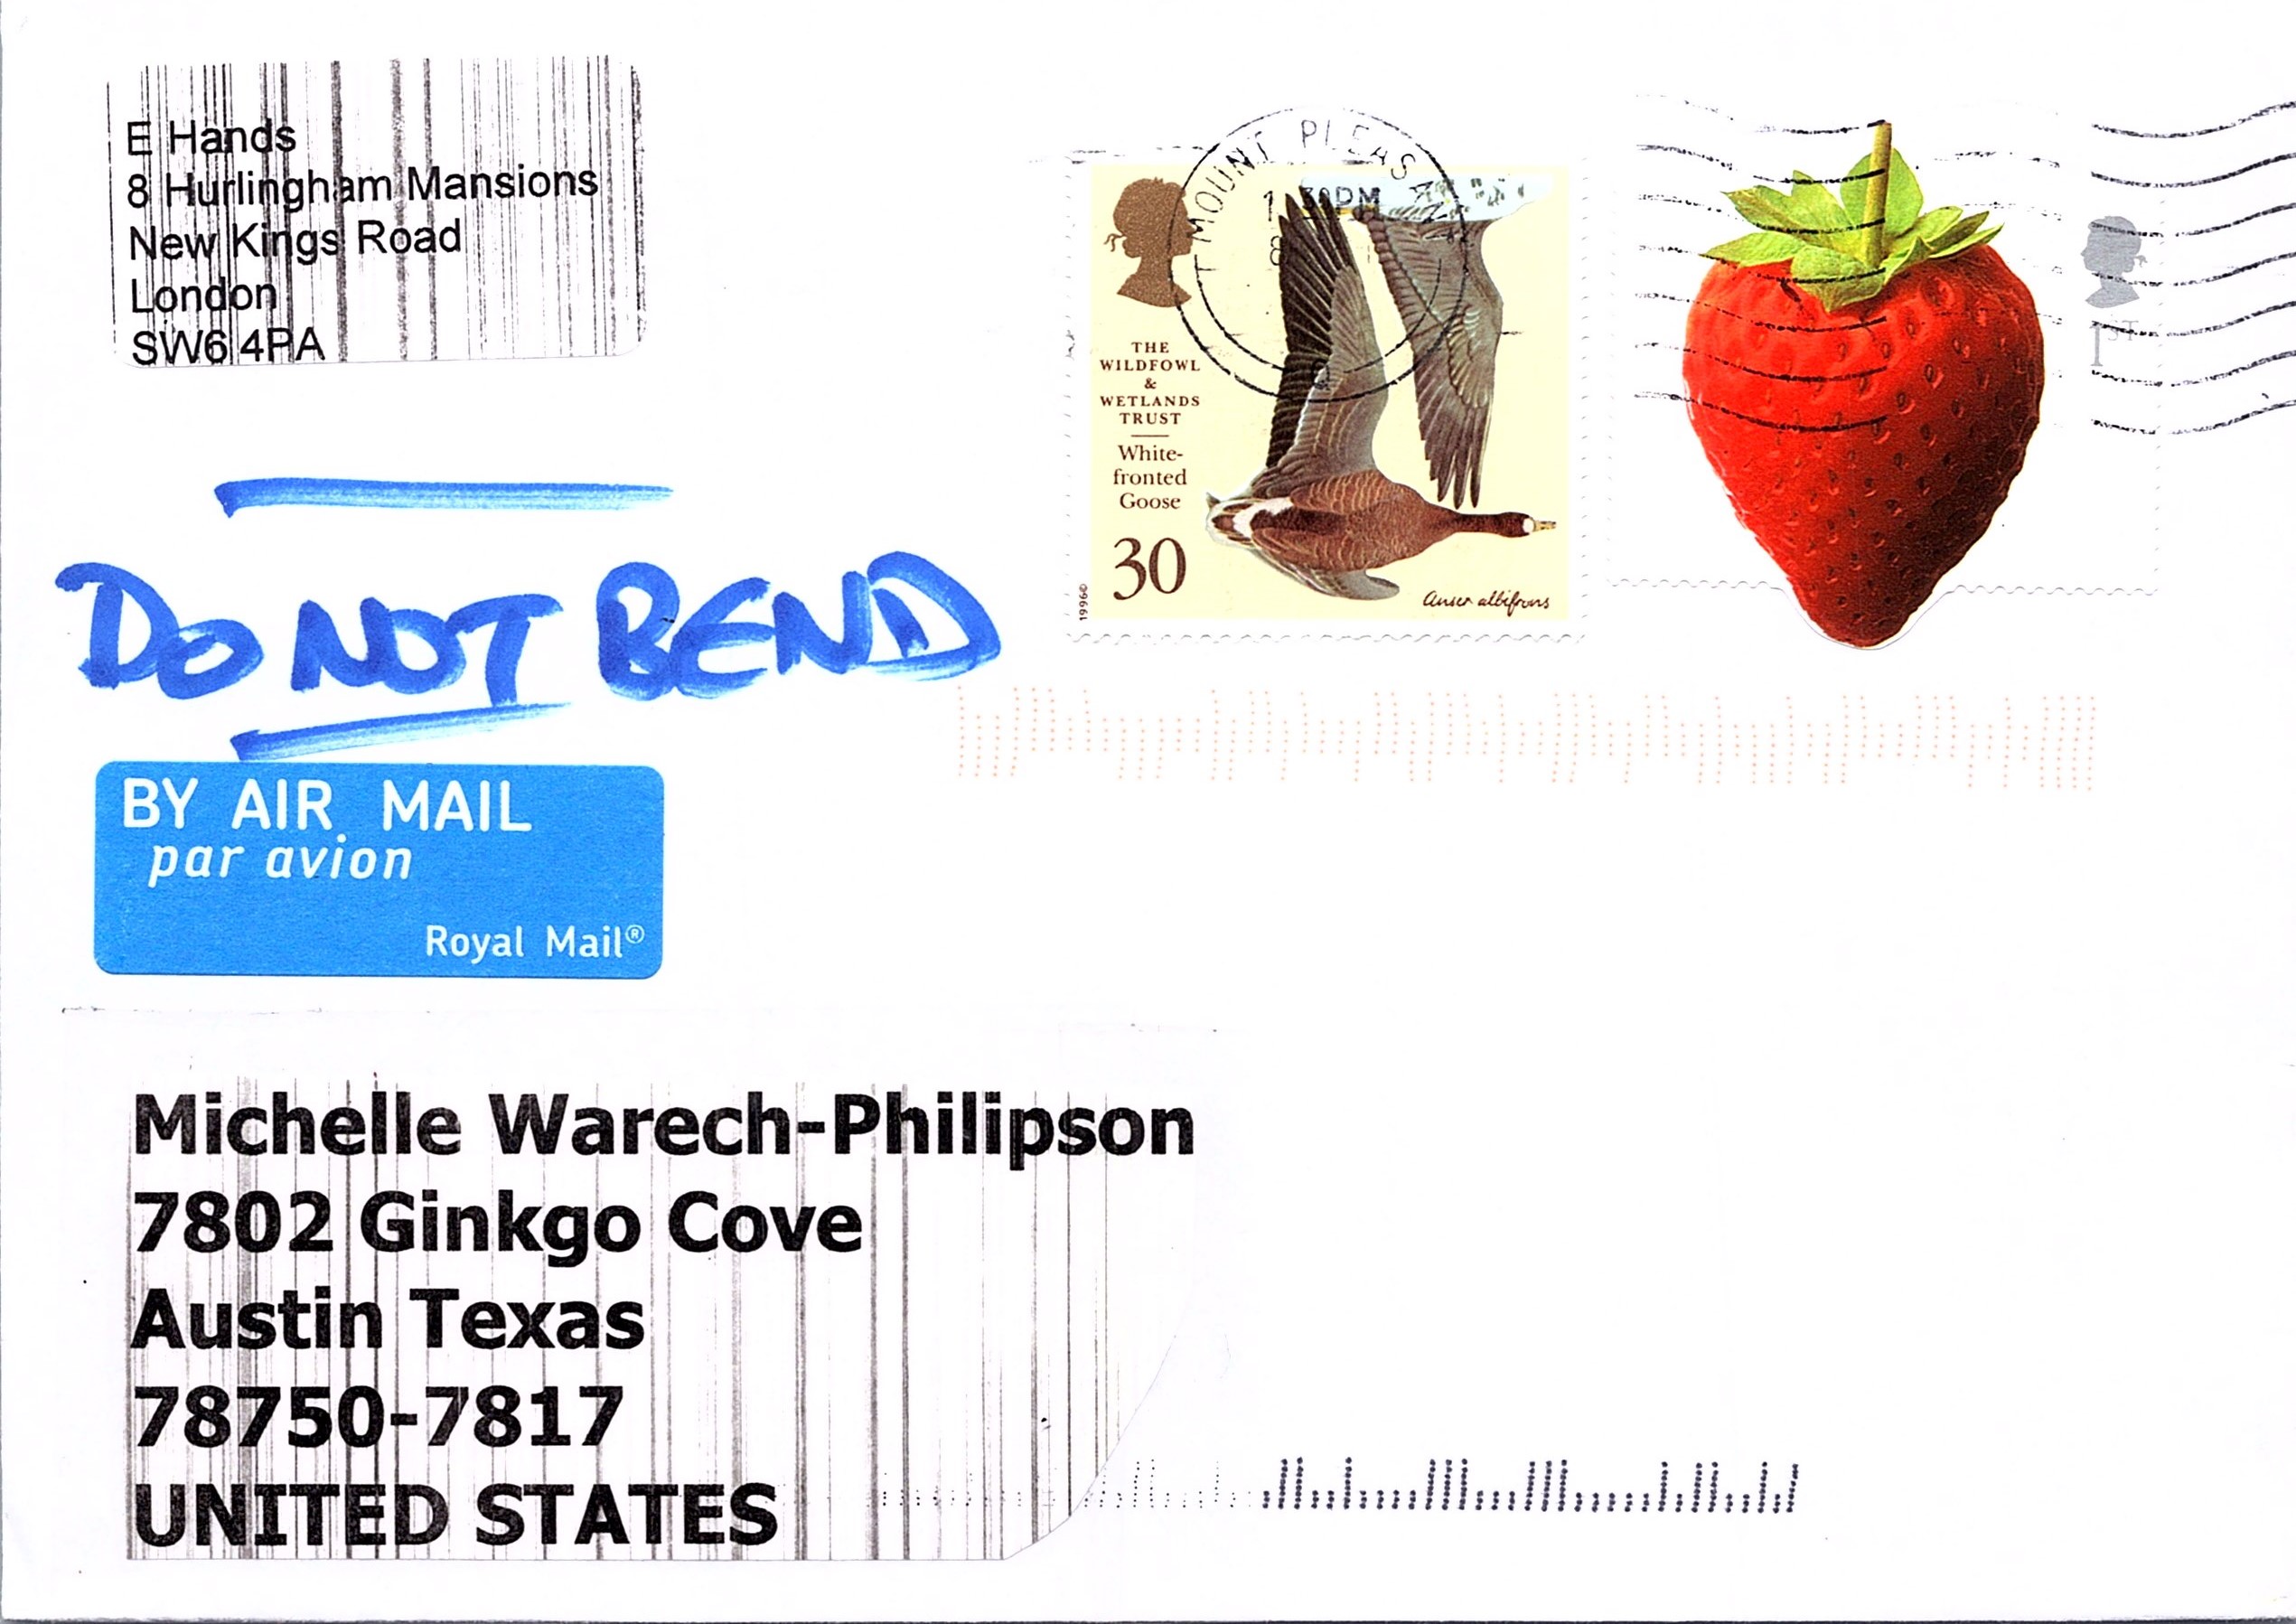 E Hands
8 Hurlingham Mansions
New Kings Road
London
SW6 4PA
MOUNT PLEASANT
THE
WILDFOWL
&
WETLANDS
TRUST
White-
fronted
Goose
30
1996©
Anser albifrons
1ST
DO NOT BEND
BY AIR MAIL
par avion
Royal Mail®
Michelle Warech-Philipson
7802 Ginkgo Cove
Austin Texas
78750-7817
UNITED STATES